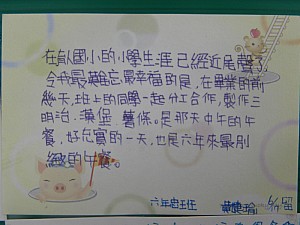 在臥國小的小學生涯已經近尾聲了
令我最難忘最幸福的是，在畢業的前
幾天，班上的同學一起分工合作，製作三
明治、漢堡、薯條。是那天中午的午
餐，好充實的一天，也是六年來最別
緻的午餐。
六年忠班 6/9留